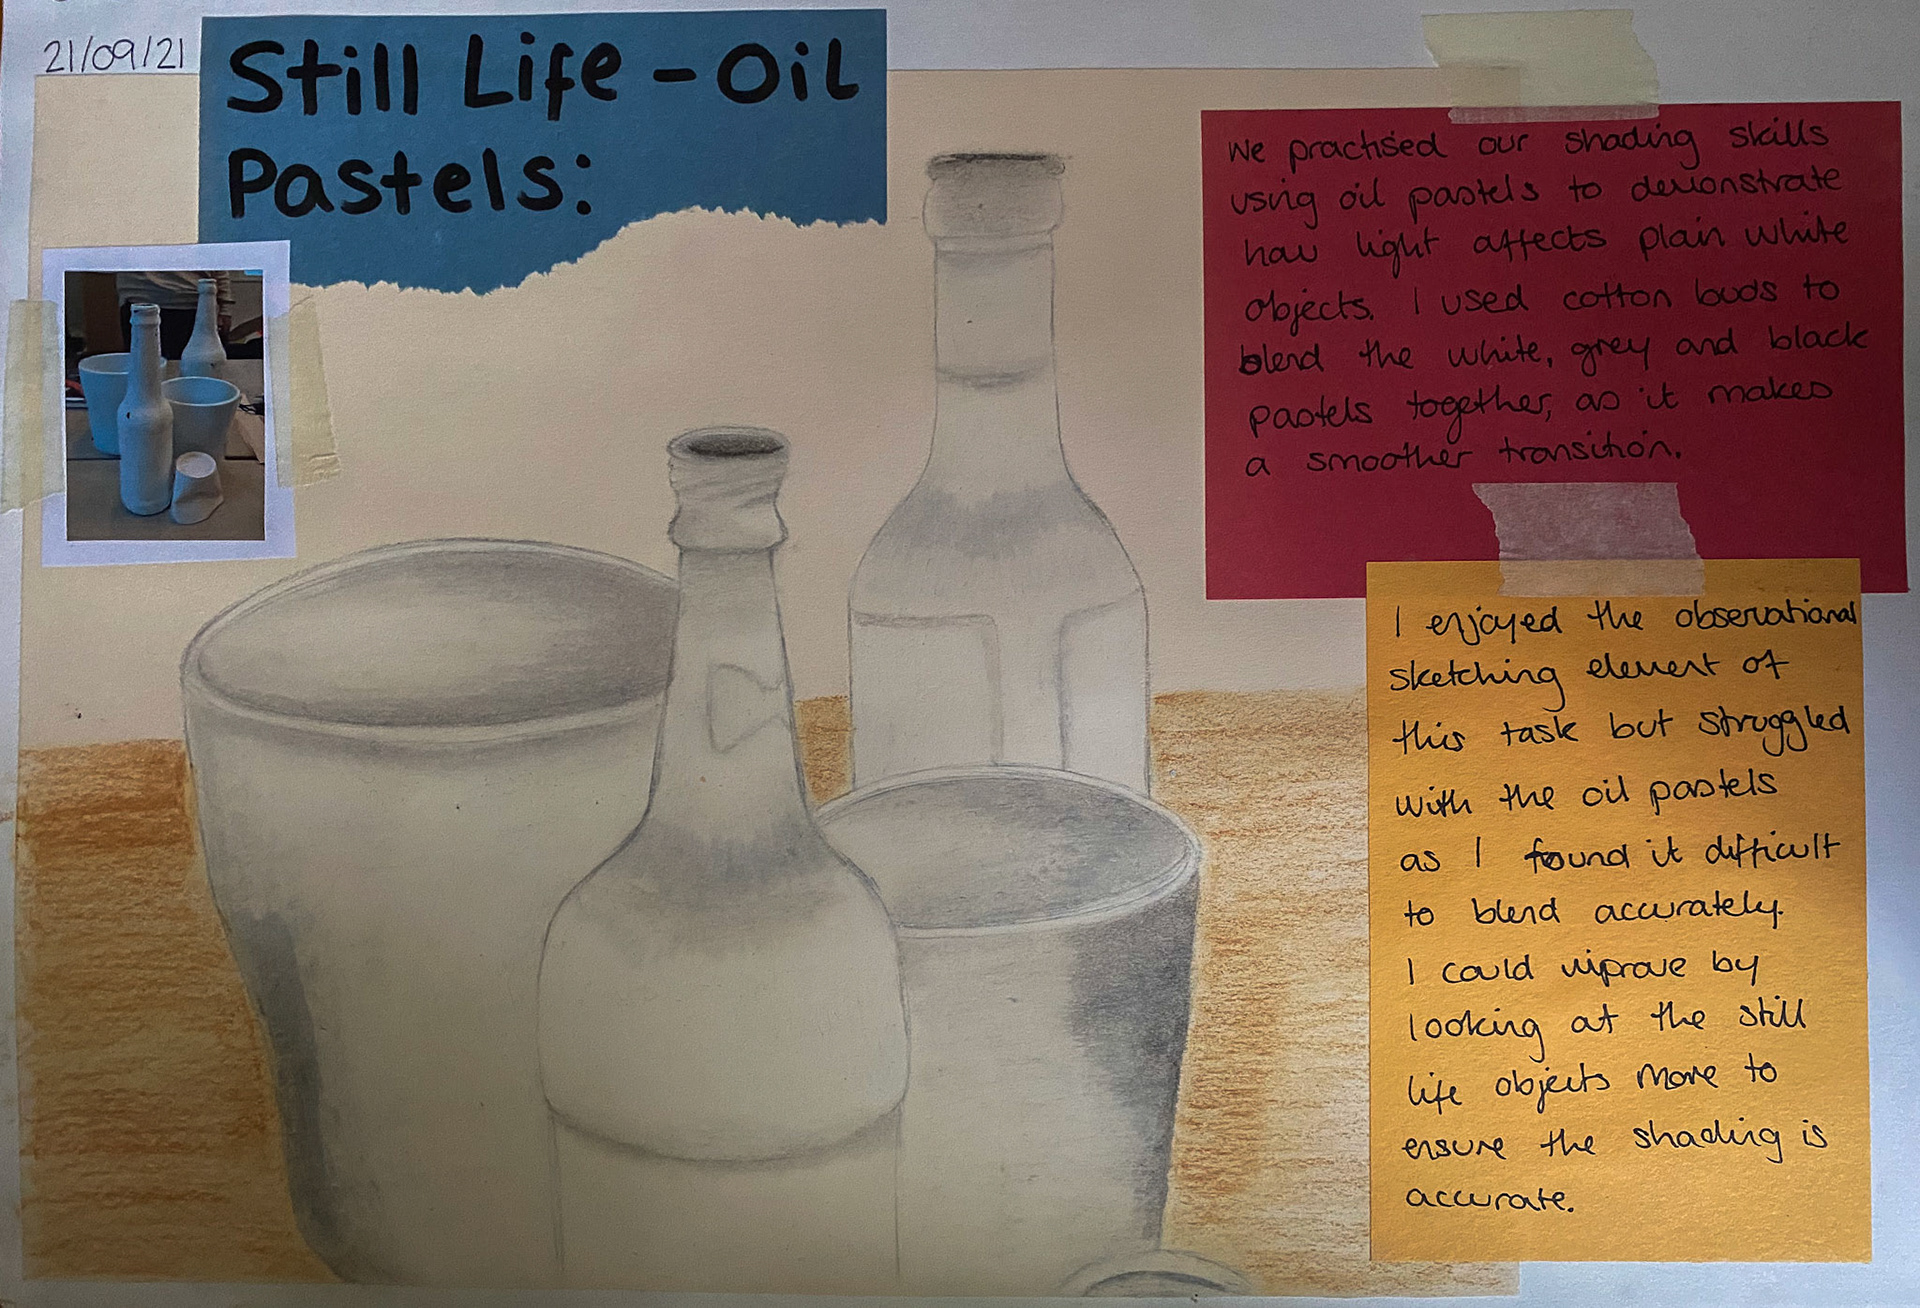 21/09/21
Still Life - Oil
Pastels:
We practised our shading skills
using oil pastels to demonstrate
how light affects plain white
objects. I used cotton buds to
blend the white, grey and black
pastels together, as it makes
a smoother transition.
I enjoyed the observational
sketching element of
this task but struggled
with the oil pastels
as I found it difficult
to blend accurately.
I could improve by
looking at the still
life objects more to
ensure the shading is
accurate.